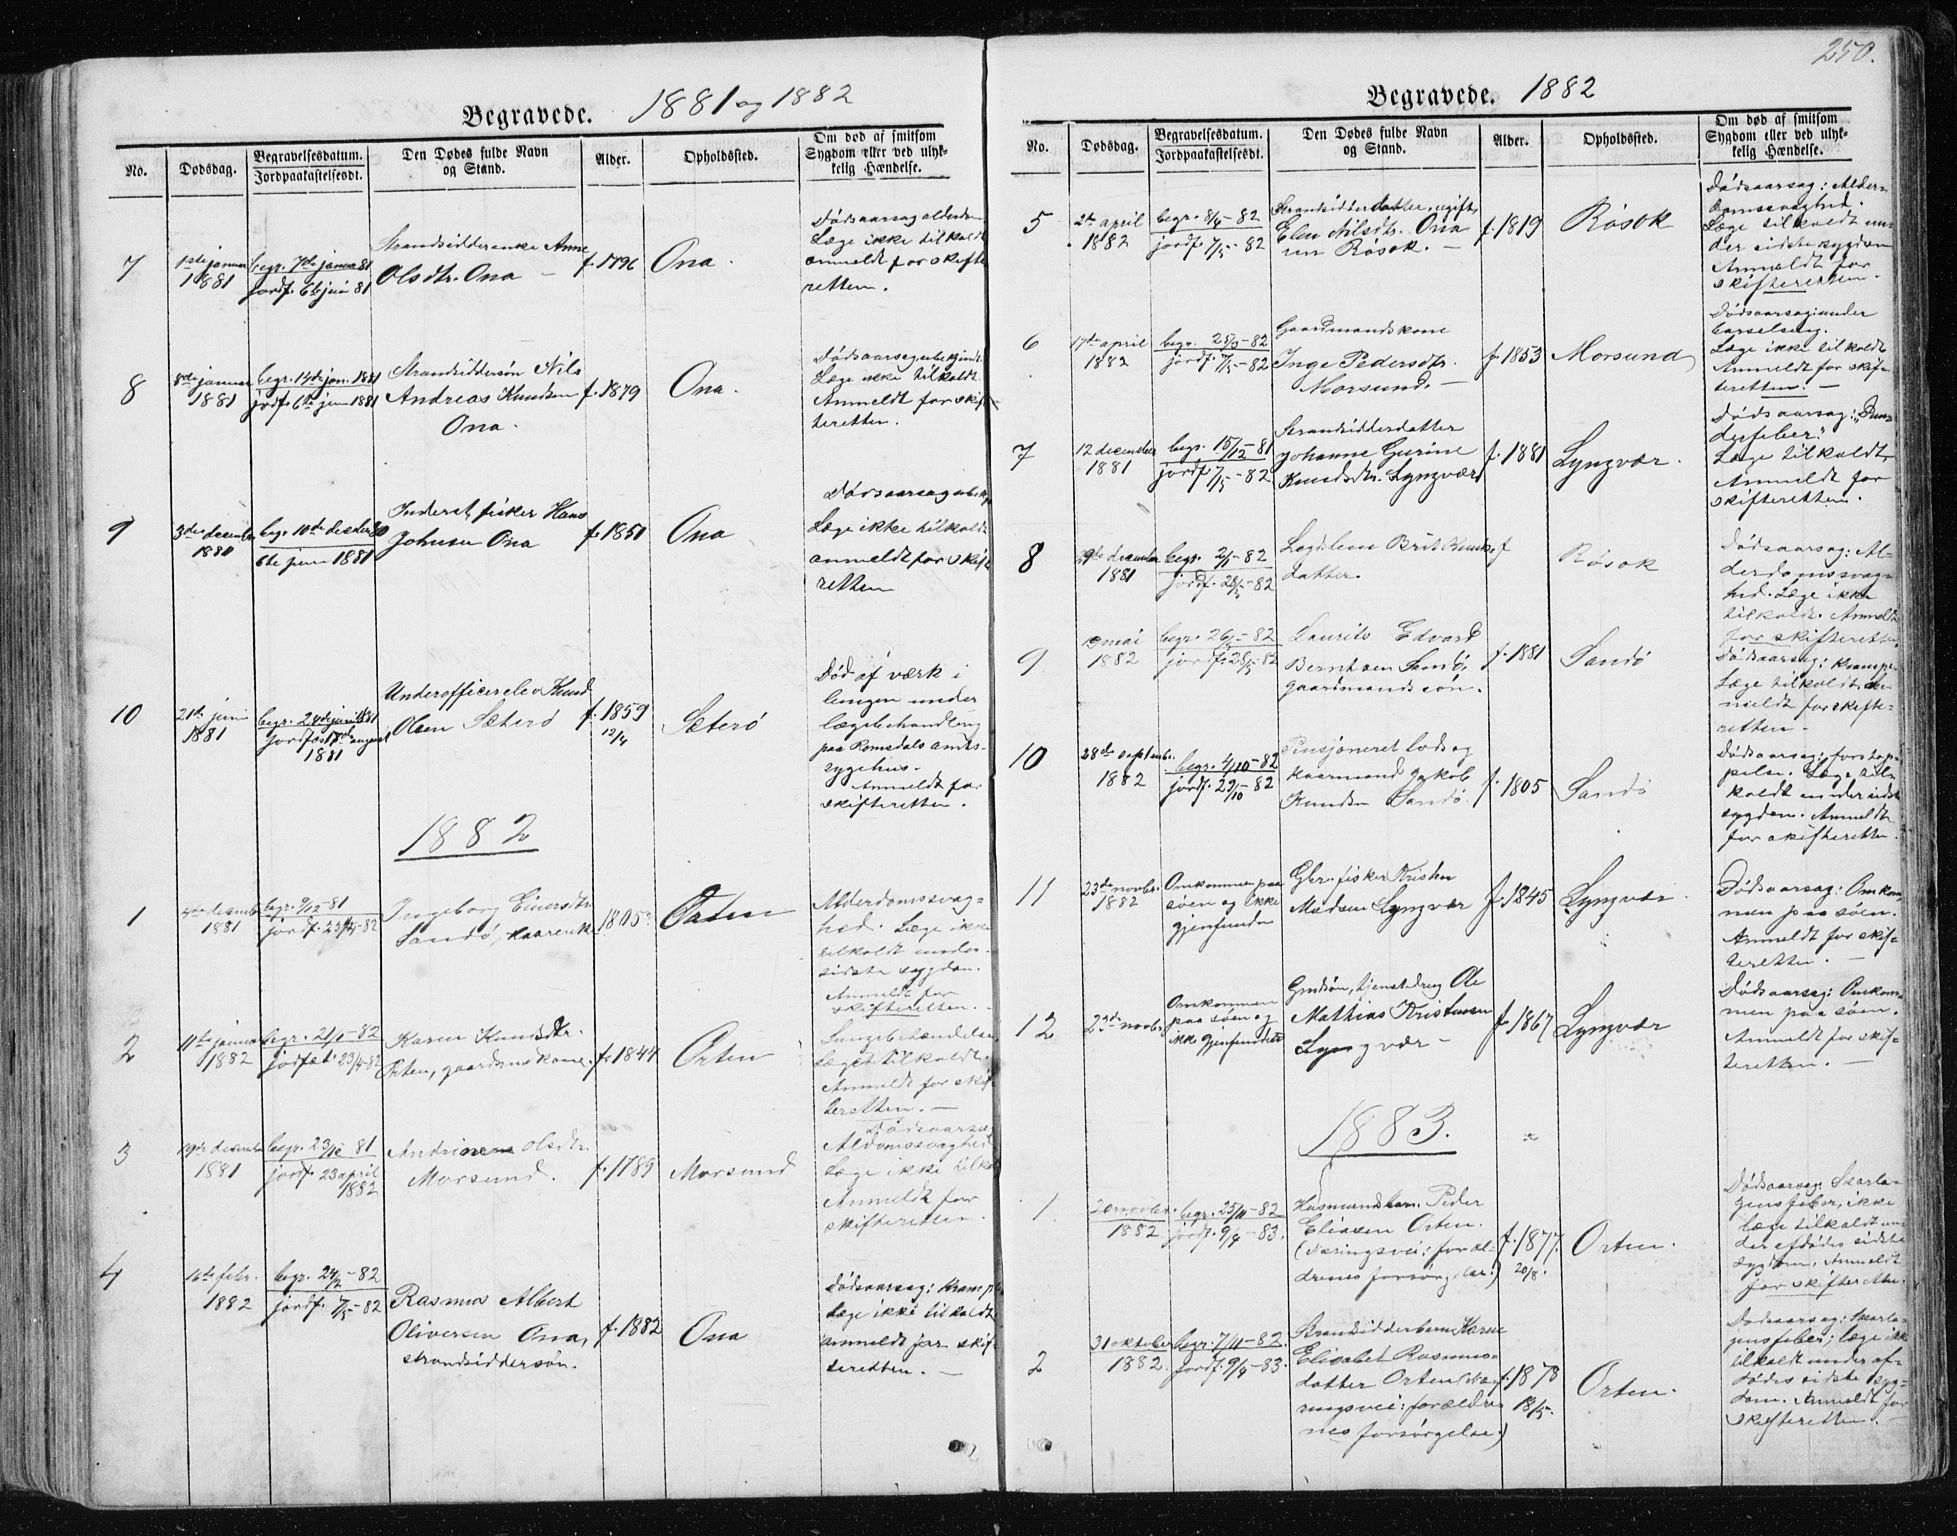 250.
Begravede. 1881 og 1882
No.
Dødsdag.
Begravelsesdatum.
Jordpaakastelsesdt.
Den Dødes fulde Navn
og Stand.
Alder.
Opholdssted.
Om død af smitsom
Sygdom eller ved ulyk-
kelig Hændelse.
7
1ste januar
1881
begr. 7de januar 81
jordf. 6te juni 81
Strandsidderenke Anne
Olsdtr. Ona –
f. 1796
Ona.
Dødsaarsag alderdom
Læge ikke tilkaldt
anmeldt for skifte
retten.
8
8de januar
1881
begr. 14de jan. 1881
jordf. 6te juni 1881
Strandsiddersøn Nils
Andreas Knudsen
Ona.
f. 1879
Ona.
Dødsaarsag ubekjendt.
Læge ikke tilkaldt.
Anmeldt for skif-
teretten.
9
3de december
1880
begr. 10de december 80
6te juni 1881
Inderst, fisker Hans
Johnsen Ona
f. 1851
Ona
Dødsaarsag
Læge ikke tilkaldt
anmeldt for skifte
retten
10
21de juni
1881
begr. 28de juni 1881
jordfæst august
1881
Underofficerselev Knud
Olsen Sæterö
f. 1859
12/4
Sæterö
Død af værk i
lungen under
lægebehandling
paa Romsdals amts-
sygehus.
Anmeldt for
skifteretten.
1882
1
4de decemb.
1881
begr. 9/12 - 81
jordf. 23/4 - 82
Ingeborg Einersdtr.
Sandö, kaarenk.
1805
Orten
Alderdomssvag-
hed. Læge ikke
tilkaldt under
sidste sygdom.
Anmeldt for
skifteretten. –
2
11te januar
1882
begr. 21/1 - 82
jordfæt. 23/4 - 82
Karen Knudsdtr.
Orten, gaardmskone.
f. 1844
Orten
Lungebetændelse
Læge tilkaldt.
Anmeldt for skif-
teretten. –
3
19de decemb
1881
begr. 23/12 81
jordf. 23 april
1882
Andrine Olsdtr.
Morsund.
f. 1789
Morsund
Dødsaarsag
Aldomssvaghed
Læge ikke tilkal
Anmeldt for
skifteretten.
4
16de febr.
1882
begr. 24/2 - 82
jordf. 7/5 - 82
Rasmus Albert
Oliversen Ona,
strandsiddersøn.
f. 1882
Ona
Dødsaarsag: Krampe
Læge ikke tilkaldt
anmeldt for skif-
teretten. –
Begravede. 1882
No.
Dødsdag.
Begravelsesdatum.
Jordpaakastelsesdt.
Den Dødes fulde Navn
og Stand.
Alder.
Opholdssted.
Om død af smitsom
Sygdom eller ved ulyk-
kelig Hændelse.
5
2den april
1882
begr. 8/4 - 82
jordf. 7/5 - 82
Strandsidderdatter, ugift,
Elen Nilsdtr. Ona
Røsok. –
f. 1819
Røsok
Dødsaarsag: Alder-
domssvaghed.
Læge tilkaldt un-
der sidste sygdom
Anmeldt for
skifteretten.
6
17de april
1882
begr. 28/5 - 82
jordf. 7/5 - 82
Gaardmandskone
Inge Pedersdtr.
Morsund. –
f. 1853
Morsund
Dødsaarsag: under
barselseng.
Læge ikke tilkaldt
Anmeldt for skif-
teretten. –
7
12 december
1881
begr. 15/12 - 81
jordf. 7/5 - 82
Strandsidderdatter
Johanne Gurine
Knudsdtr. Lyngvær
f. 1881
Lyngvær.
Dødsaarsag:
Læge tilkaldt,
Anmeldt for
skifteretten.
8
29de december
1881
begr. 2/1 - 82
jordf. 28/5 - 82
Lægdslem Brit Knuds-
datter.
f
Røsok
Dødsaarsag: Al-
derdomssvag-
hed. Læge ikke
tilkaldt. Anmeldt
for skifteretten
9
mai
1882
begr. 26/5 - 82
jordf. 28/5 - 82
Laurits Edvard
Berntsen Sandö,
gaardmandssøn.
f. 1881
Sandö
Dødsaarsag: krampe
Læge tilkaldt. An-
meldt for skifte-
retten –
10
28de septemb.
1882
begr. 4/10 - 82
jordf. 29/10 - 82
Pensjoneret lods og
kaarmand Jakob
Knudsen Sandö.
f. 1805
Sandö
Dødsaarsag: forstop-
pelse. Læge til-
kaldt under sidste
sygdom. Anmeldt
for skifteretten.
11
23de novbr.
1882
Omkommen paa
søen og ikke
gjenfunden
Gbr. fisker Kristen
Madsen Lyngvær
f. 1845
Lyngvær
Dødsaarsag: Omkom-
men paa søen.
Anmeldt for skif-
teretten. –
12
23de novbr.
Omkommen
paa søen og
ikke gjenfundet
Gmdsøn, tjenestedreng Ole
Mathias Kristensen
Lyngvær –
f. 1867
Lyngvær
Dødsaarsag: Omkom-
men paa søen.
Anmeldt for skif-
teretten. –
1883.
1
20 novbr.
1882
begr. 25/11 - 82
jordf. 9/4 - 83.
Husmandsbarn Peder
Eliasen Orten.
(Næringsvei: foræl-
drenes forsørgelse.)
f. 1877.
20/8.
Orten.
Dødsaarsag: Skarla-
gensfeber, ikke
læge tilkaldt un-
der afdødes sidste
sygdom. Anmeldt
for skifteretten.
2
31 oktober
1882.
begr. 7/11 - 82.
jordf. 9/4 - 83.
Strandsidderbarn Karen
Elisabet Rasmus-
datter Orten (Næ-
ringsvei: forældre-
nes forsørgelse.)
f. 1878
18/5.
Orten.
Dødsaarsag: Skarla-
gensfeber; læge ikke
tilkaldt under af-
dødes sidste syg-
dom. Anmeldt for
skifteretten. –